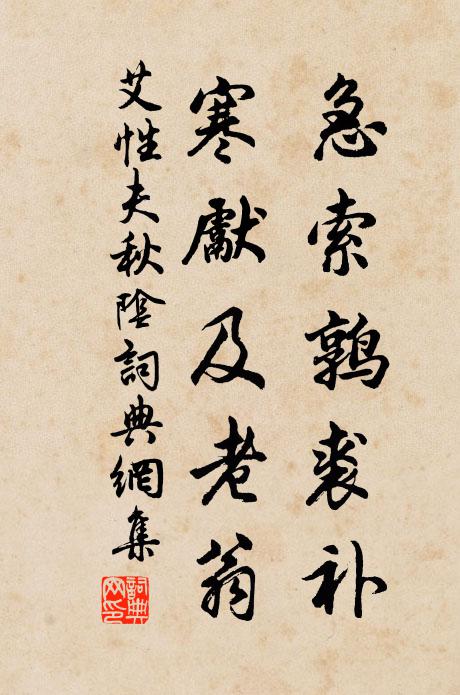 急索鶉裘补
寒獻及老翁
艾性夫秋陰詞典網集
詞典
网印